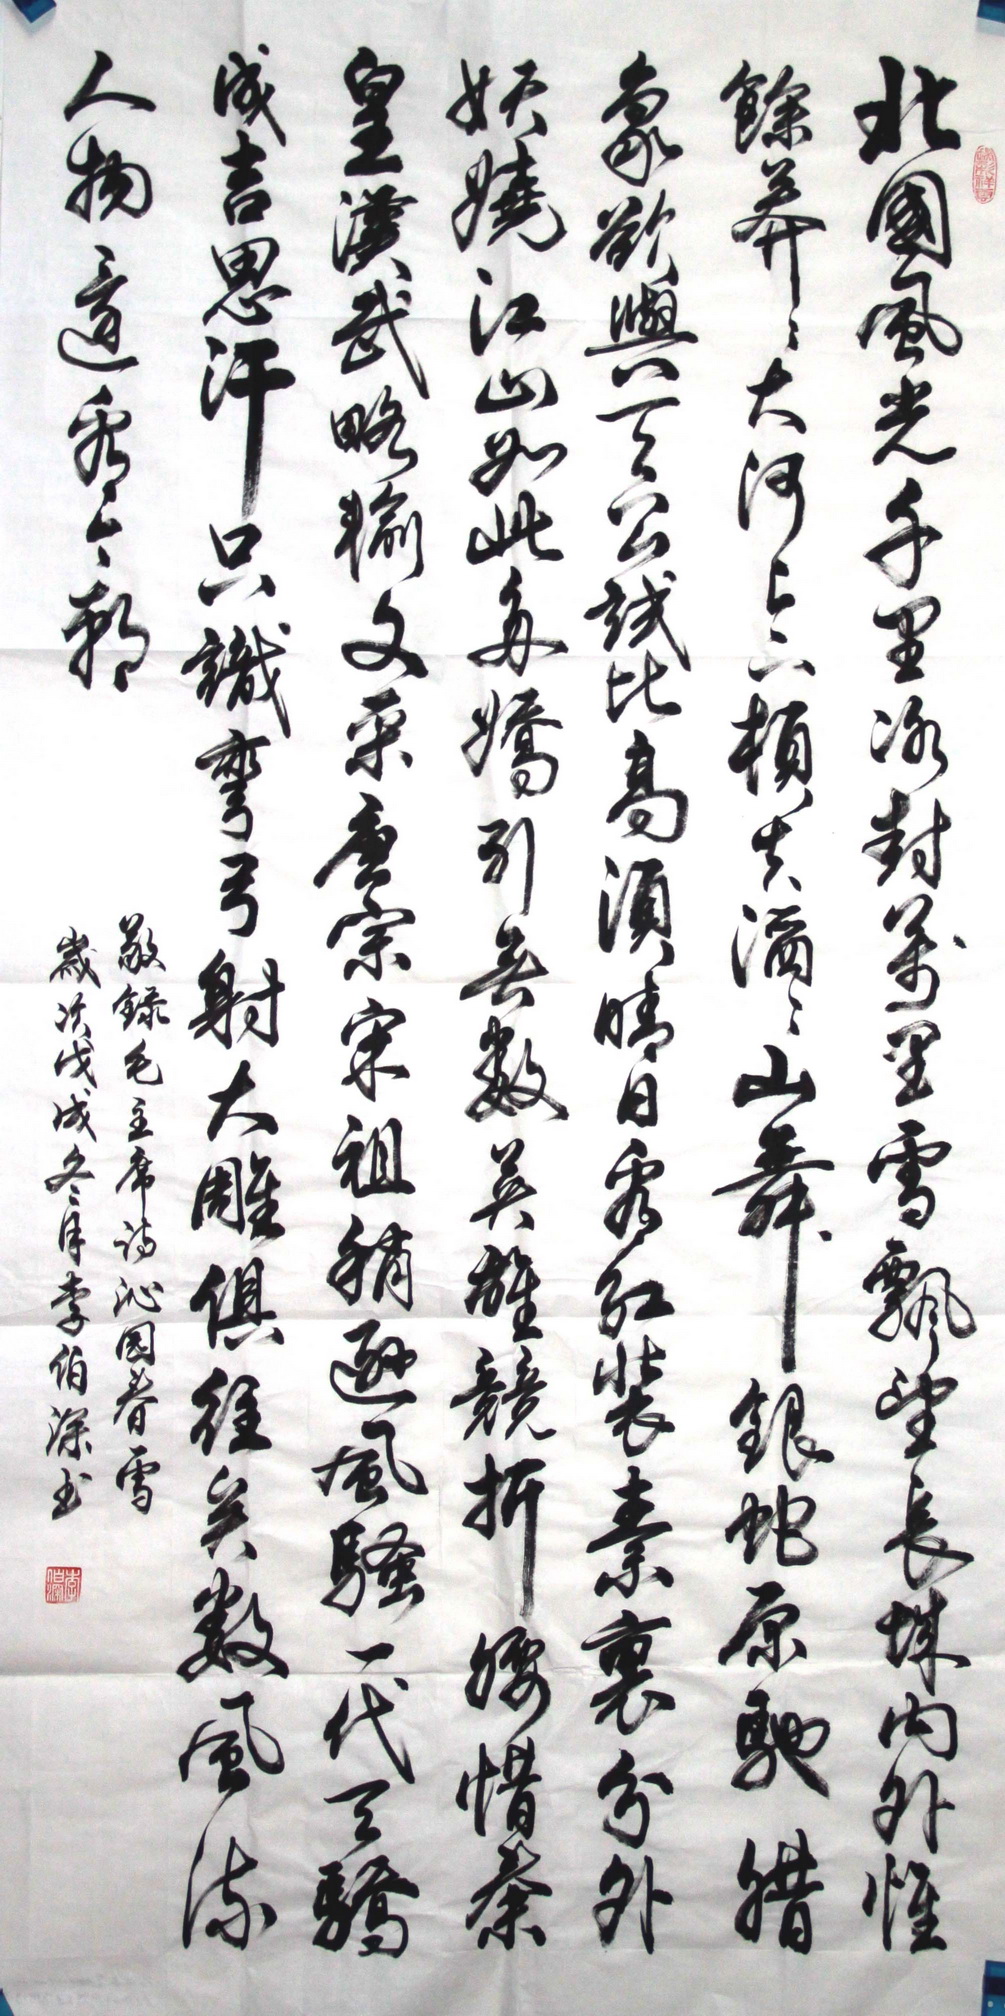 北國風光千里冰封萬里雪飄望長城內外惟
餘莽〻大河上下頓失滔〻山舞銀蛇原馳腊
象欲與天公試比高須晴日看紅裝素裹分外
妖嬈江山如此多嬌引無數英雄競折腰惜秦
皇漢武略輸文采唐宗宋祖稍遜風騷一代天驕
成吉思汗只識彎弓射大雕俱往矣數風流
人物還看今朝
敬錄毛主席詩沁園春雪
歲次戊戌冬月李伯深書